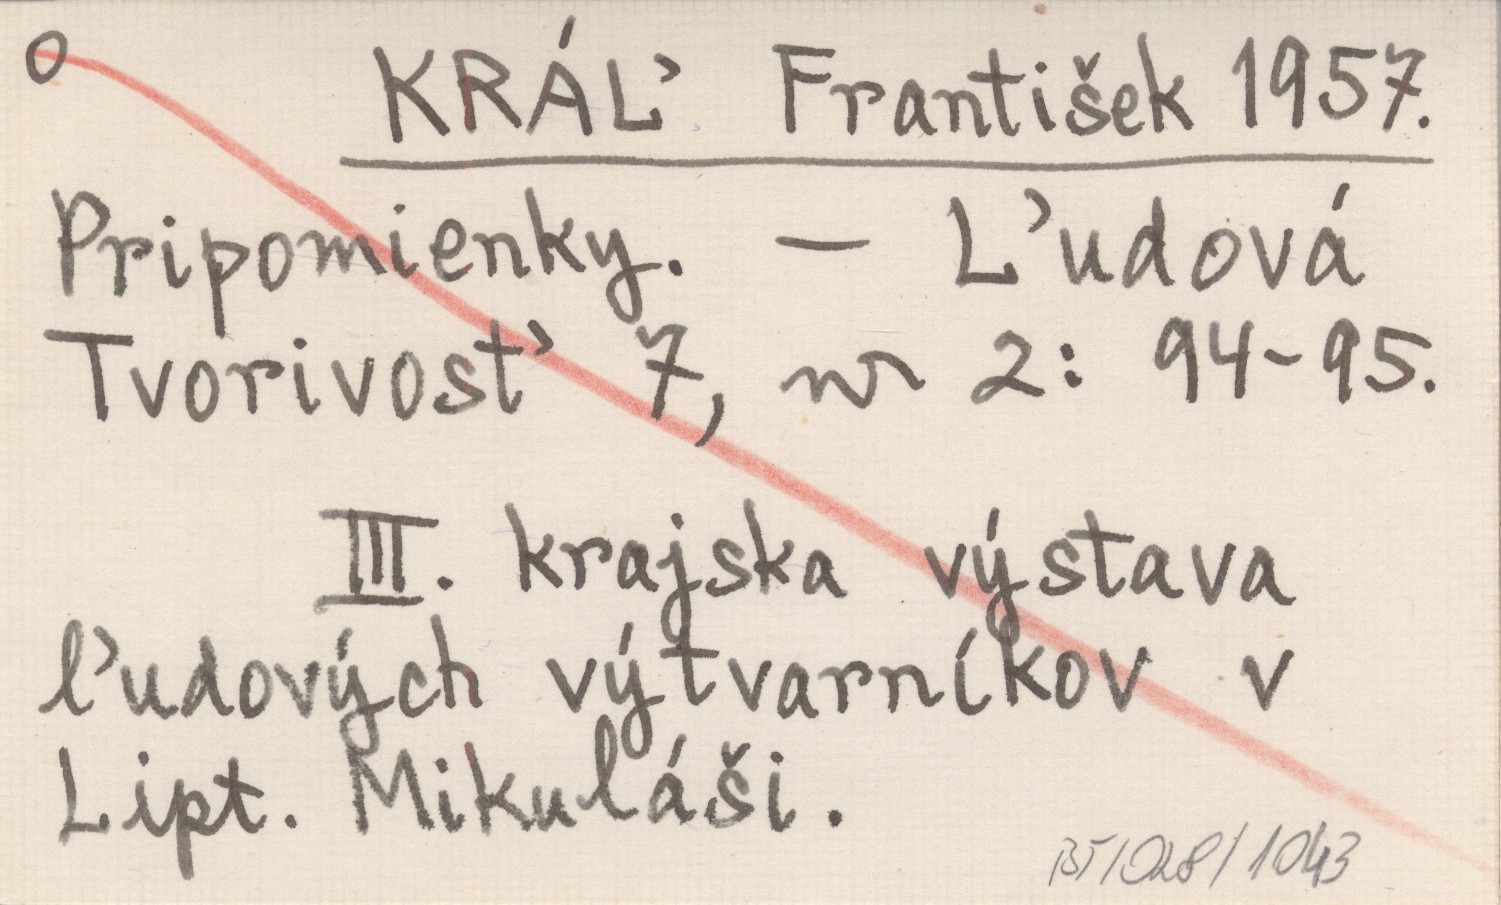 O KRÁĽ František 1957.
Pripomienky. — Ľudová
Tvorivosť 7, nr 2: 94-95.
III. krajska výstava
ľudových výtvarníkov v
Lipt. Mikuláši.
BT/028/1043